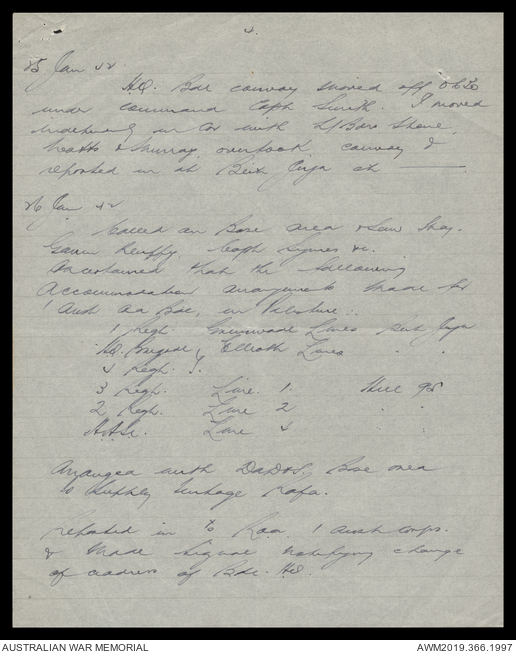 25 Jan 42
H.Q. Bde convoy moved off 0630
under command Capt Smith. I moved
in car with
& Murray, overtook convoy &
reported in at Beit Jirja at
26 Jan 42
Called on Base area & saw Maj.
Capt Symes &c.
Ascertained that the following
Accommodation arrangements made for
1 Aust AA Bde, in Palestine:
1 Regt. Lines Beit Jirja
HQ. Brigade } Lines " "
4 Regt. }
3 Regt. Line 1 Hill 95
2 Regt. Line 2 " "
Line 4 " "
Arranged with DADOS, Base area
Rafa.
Reported in to 1 Aust Corps.
& made signal notifying change
of address of Bde. HQ.
AUSTRALIAN WAR MEMORIAL
AWM2019.366.1997